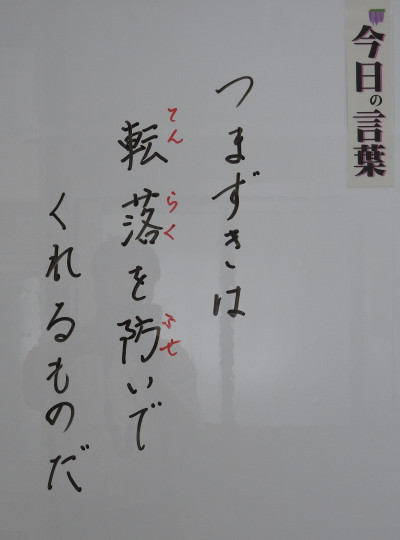 今日の言葉
つまずきは
てん らく ふせ
転落を防いで
くれるものだ